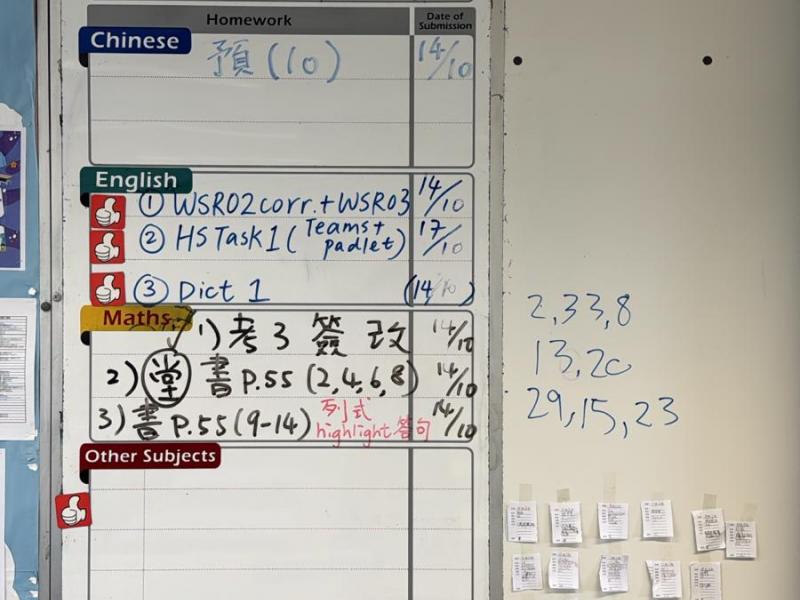 Homework
Date of Submission
Chinese
預(10) 14/10
English
① WSR02corr.+WSR03 14/10
② HSTask1(Teams+ padlet) 17/10
③ Dict 1 (14/10)
Maths
1) 考3 簽改 14/10
2) 堂 書 P.55 (2,4,6,8) 14/10
3) 書 P.55 (9-14) 列式 highlight答句 14/10
Other Subjects
2,33,8
13,20
29,15,23